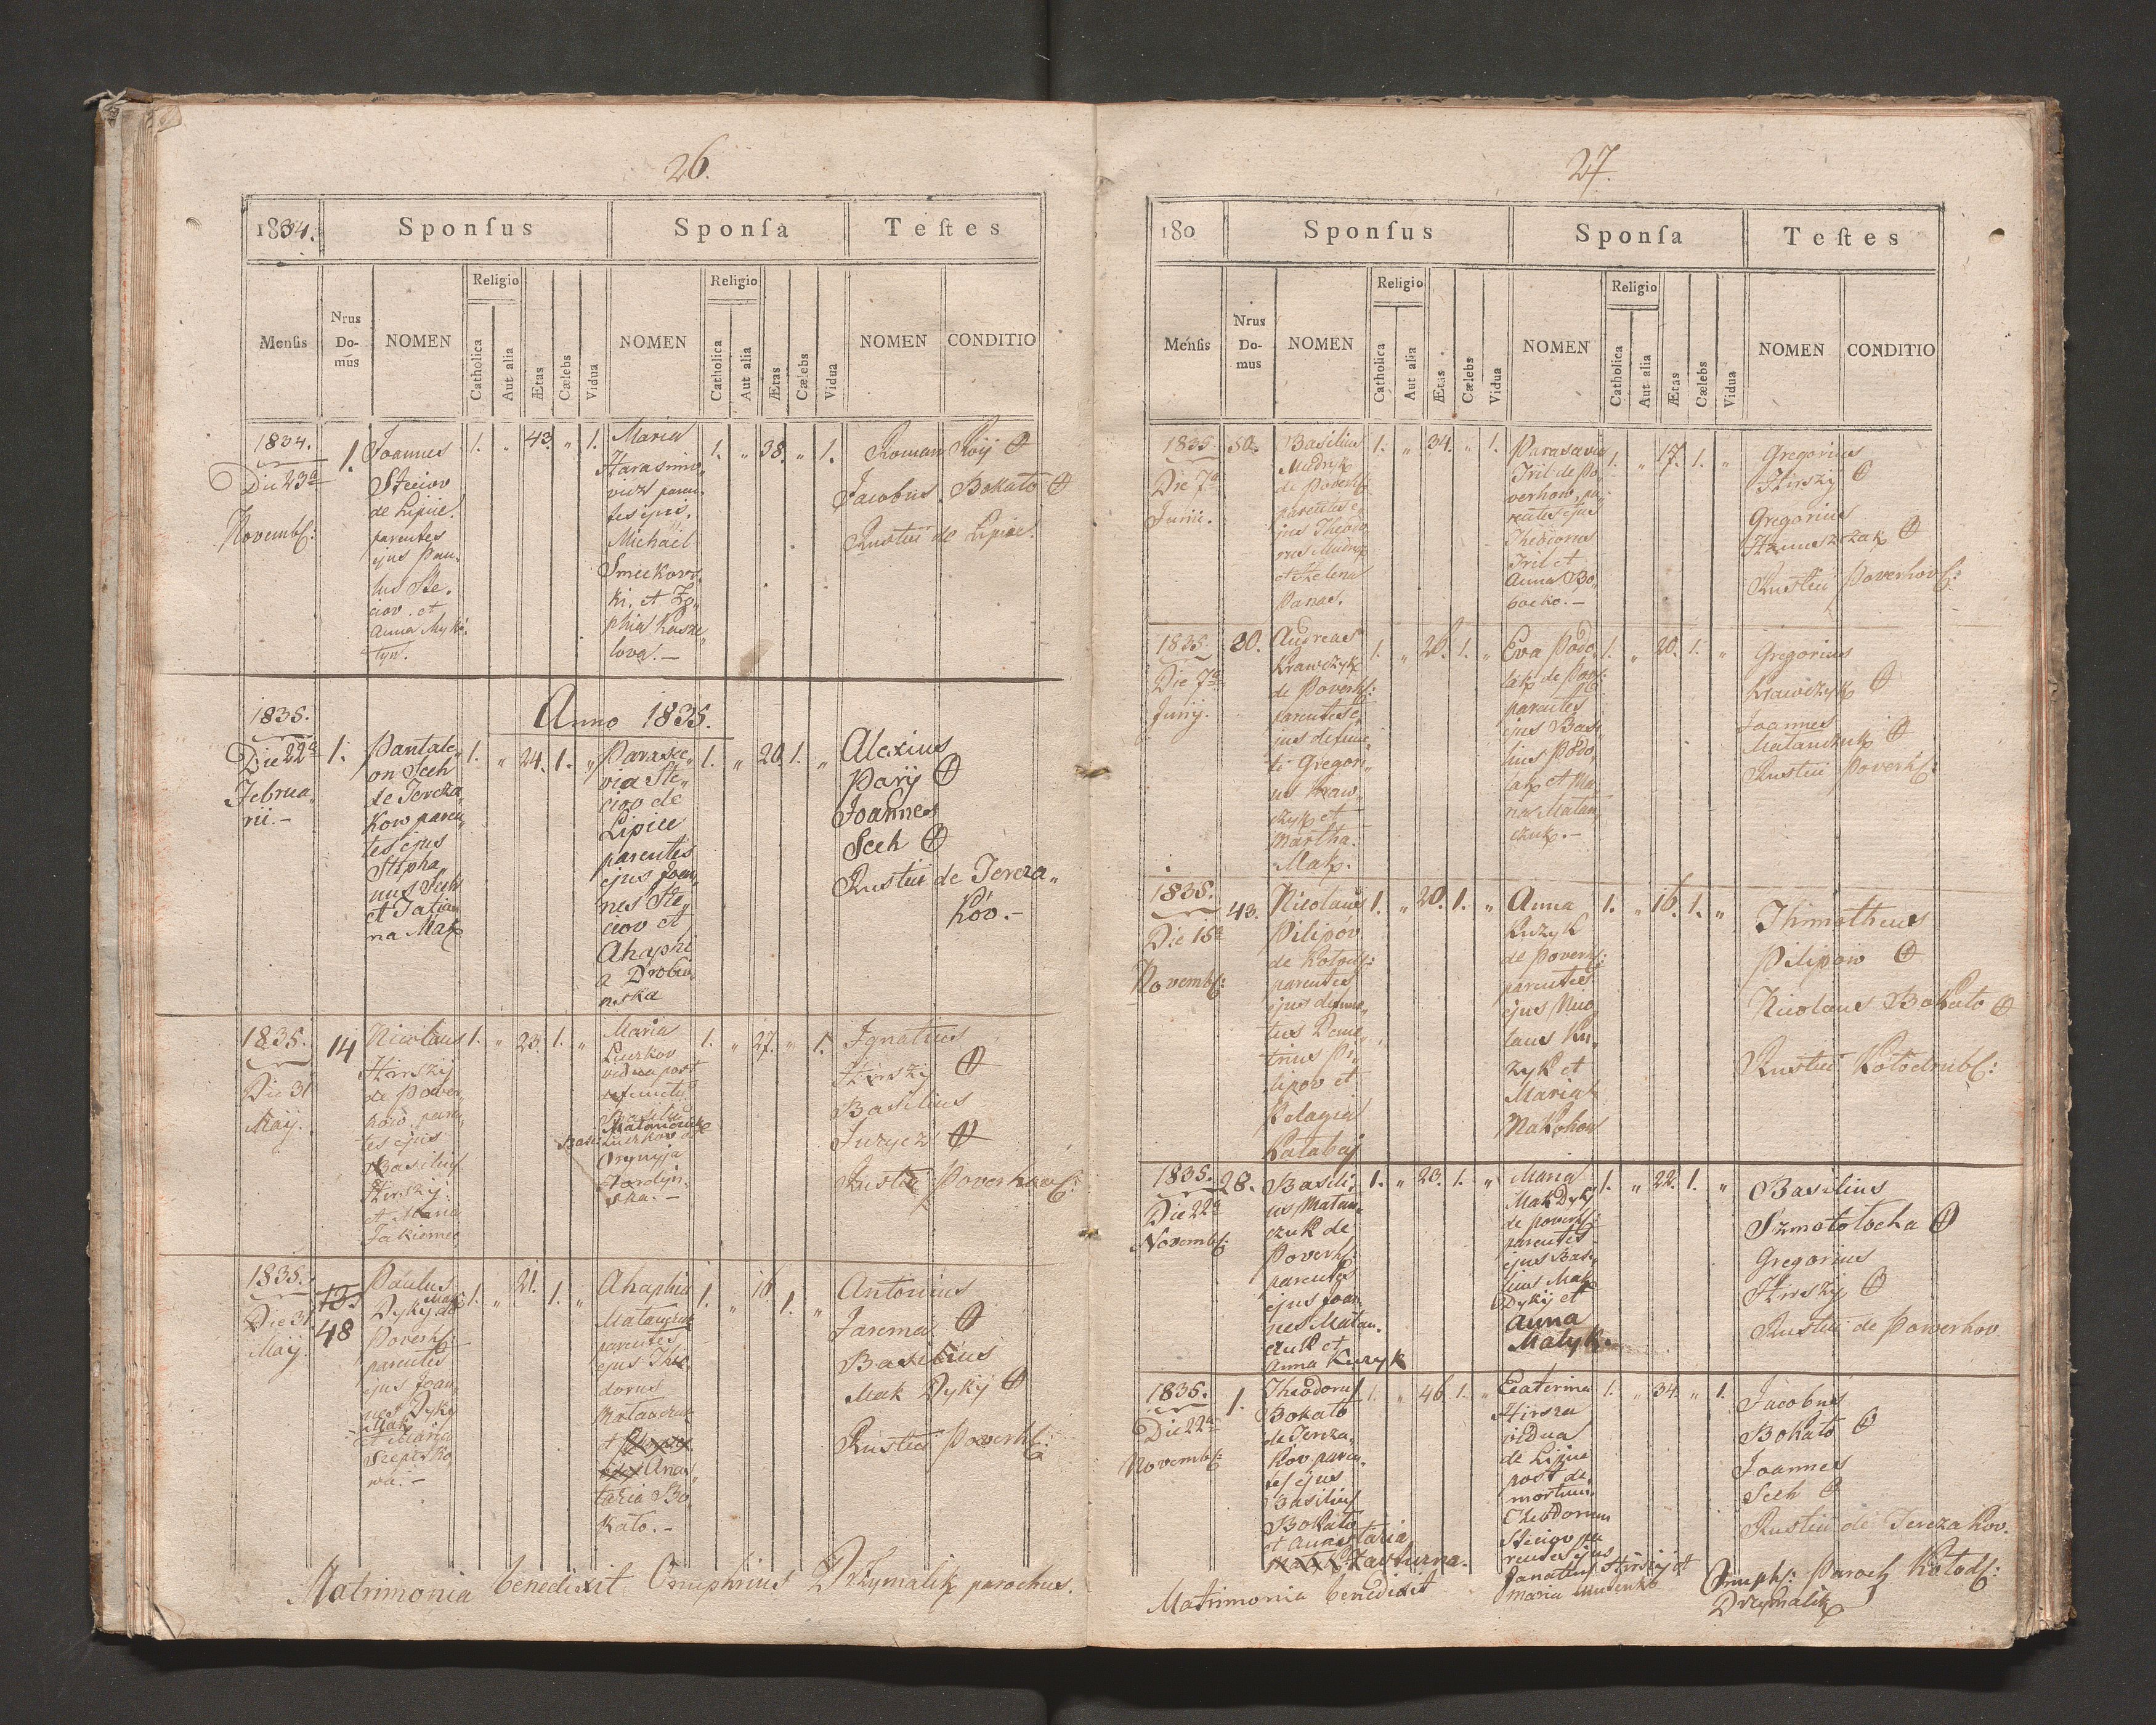 26.
1834.
Sponſus
Sponſa
Teſtes
Menſis
Nrus Do-mûs
NOMEN
Religio
Catholica
Aut alia
Ætas
Cælebs
Vidua
NOMEN
Religio
Catholica
Aut alia
Ætas
Cælebs
Vidua
NOMEN
CONDITIO
1834.
Die 23a
Novembr:
1.
Joannes
Steciov
de Lipice
parentes
ejus Pau„
lus Ste„
ciov et
Anna Myke
tyn.
1. „ 43. „ 1.
Maria
Harasimo„
vicz paren„
tes ipsi,
Michael
Smeekow„
ki, et Zo„
phia Kosze„
lova.-
1. „ 38. „ 1.
Roman Roij
Jacobus Bokalo
Rustici de Lipice
Anno 1835.
1835.
Die 22a
Februa„
rii.-
1.
Pantale„
on Seeh
de Jereza„
kow paren„
tes ejus
Stepha
nus Seeh
et Tatian
na Mak
1. „ 24. 1. „
Paraske„
via Ste„
ciov de
Lipice
parentes
ejus Joan„
nes Ste„
ciov et
Ahaphi
a Drobin
nska
1. „ 20. 1. „
Alexius
Parij
Joannes
Seeh
Rustici de Jereza„
kóv.-
1835.
Die 31
Maij.
14
Nicolaus
Hirszij
de Pover„
how, paren„
tes ejus
Basilius
Hirszij
et Maria
Jakiemec
1. „ 25. 1. „
Maria
Luczkov
vidua post
defunctu
Basiliu
Matanczuk
Luczkov
Orynyja
Hordijn„
ska.-
1. „ 27. „ 1.
Ignatius
Hirszij
Basilius
Jurycz
Rustici Poverhov:
1835.
Die 31
Maij.
13.
48
Paulus
Mak
Dykij de
Poverh:
parentes
ejus Joan„
nes Dykij
Mak
et Maria
Szepisko
wa.-
1. „ 21. 1. „
Ahaphia
Matanczuk
parentes
ejus Theo„
dorus
Matanczuk
et
Anas„
tazia Bo„
kalo.-
1. „ 16. 1. „
Antonius
Jarema
Basilius
Mak Dykij
Rustici Poverh:
Matrimonia benedixit Onuphrius Drzymalik parochus.
27.
180
Sponſus
Sponſa
Teſtes
Menſis
Nrus Do-mus
NOMEN
Religio
Catholica
Aut alia
Ætas
Cælebs
Vidua
NOMEN
Religio
Catholica
Aut alia
Ætas
Cælebs
Vidua
NOMEN
CONDITIO
1835
Die 7a
Junii.
50.
Basilius
Mudryk
de Poverh:
parentes e„
jus Theodo
rus Mudryk
et Helena
Panas.
1. „ 34. „ 1.
Parasavia
Iril de Po„
verhow, pa„
rentes ejus
Theodorus
Iril et
Anna Bo„
bocko.-
1. „ 17. 1. „
Gregorius
Hirszij
Gregorius
Hanuszczak
Rustici Poverhov:
1835.
Die 7a
Junij.
30.
Andreas
Krawczyk
de Poverh:
parentes e„
jus defunc„
ti Gregori„
us Kraw„
czyk et
Martha
Mak.
1. „ 26. 1. „
Eva Podo„
lak de Pov:
parentes
ejus Basi
lius Podo„
lak et Ma„
ria Matan„
czuk.-
1. „ 20. 1. „
Gregorius
Krawczyk
Joannes
Matanczuk
Rustici Poverh:
1835.
Die 15a
Novemb:
43.
Nicolaus
Pilipóv
de Kolod:
parentes
ejus defunc„
tus Deme„
trius Pi„
lipov et
Pelagia
Balabaj
1. „ 20. 1. „
Anna
Kuzyk
de Poverh:
parentes
ejus Nico„
laus Ku„
zyk et
Maria
Makohon
1. „ 16. 1. „
Thimotheus
Pilipow
Nicolaus Bokalo
Rustici Kolodrub:
1835.
Die 22a
Novemb:
28.
Basili„
us Matan„
czuk de
Poverh:
parentes
ejus Joan„
nes Matan„
czuk et
Anna Kuzyk
1. „ 23. 1. „
Maria
Mak Dykij
de Poverh:
parentes
ejus Basi„
lius Mak
Dykij et
Anna
Matyk
1. „ 22. 1. „
Basilius
Szmolotocha
Gregorius
Hirszij
Rustici de Powerhov
1835.
Die 22a
Novemb:
1.
Theodorus
Bokalo
de Jereza„
kov paren„
tes ejus
Basilius
Bokalo
et Anastazia
Zavburna.
1. „ 46. 1. „
Ecaterina
Hirsza
vidua
de Lipice
post de„
mortuum
Theodorum
Steciov pa
rentes ejus
Panatius Hirszij et
Maria
1. „ 34. „ 1.
Jacobus
Bokalo
Joannes
Seeh
Rustici de Jerezakov.
Matrimonia benedixit
Onuph: Paroch Kolod:
Drzymalik